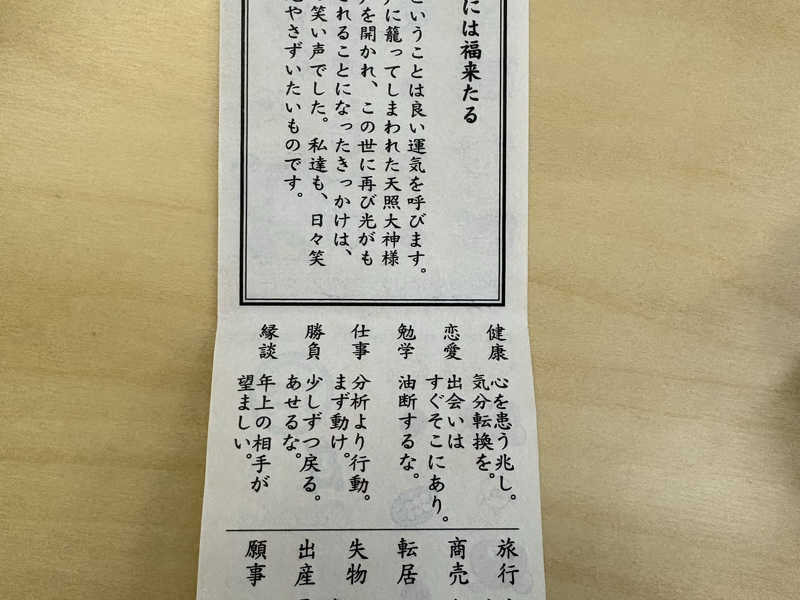 には福来たる
ということは良い運気を呼びます。
に籠ってしまわれた天照大神様
を開かれ、この世に再び光がも
れることになったきっかけは、
笑い声でした。私達も、日々笑
やさずいたいものです。
健康 心を患う兆し。
気分転換を。
恋愛 出会いは
すぐそこにあり。
勉学 油断するな。
仕事 分析より行動。
まず動け。
勝負 少しずつ戻る。
あせるな。
縁談 年上の相手が
望ましい。
旅行
商売
転居
失物
出産
願事